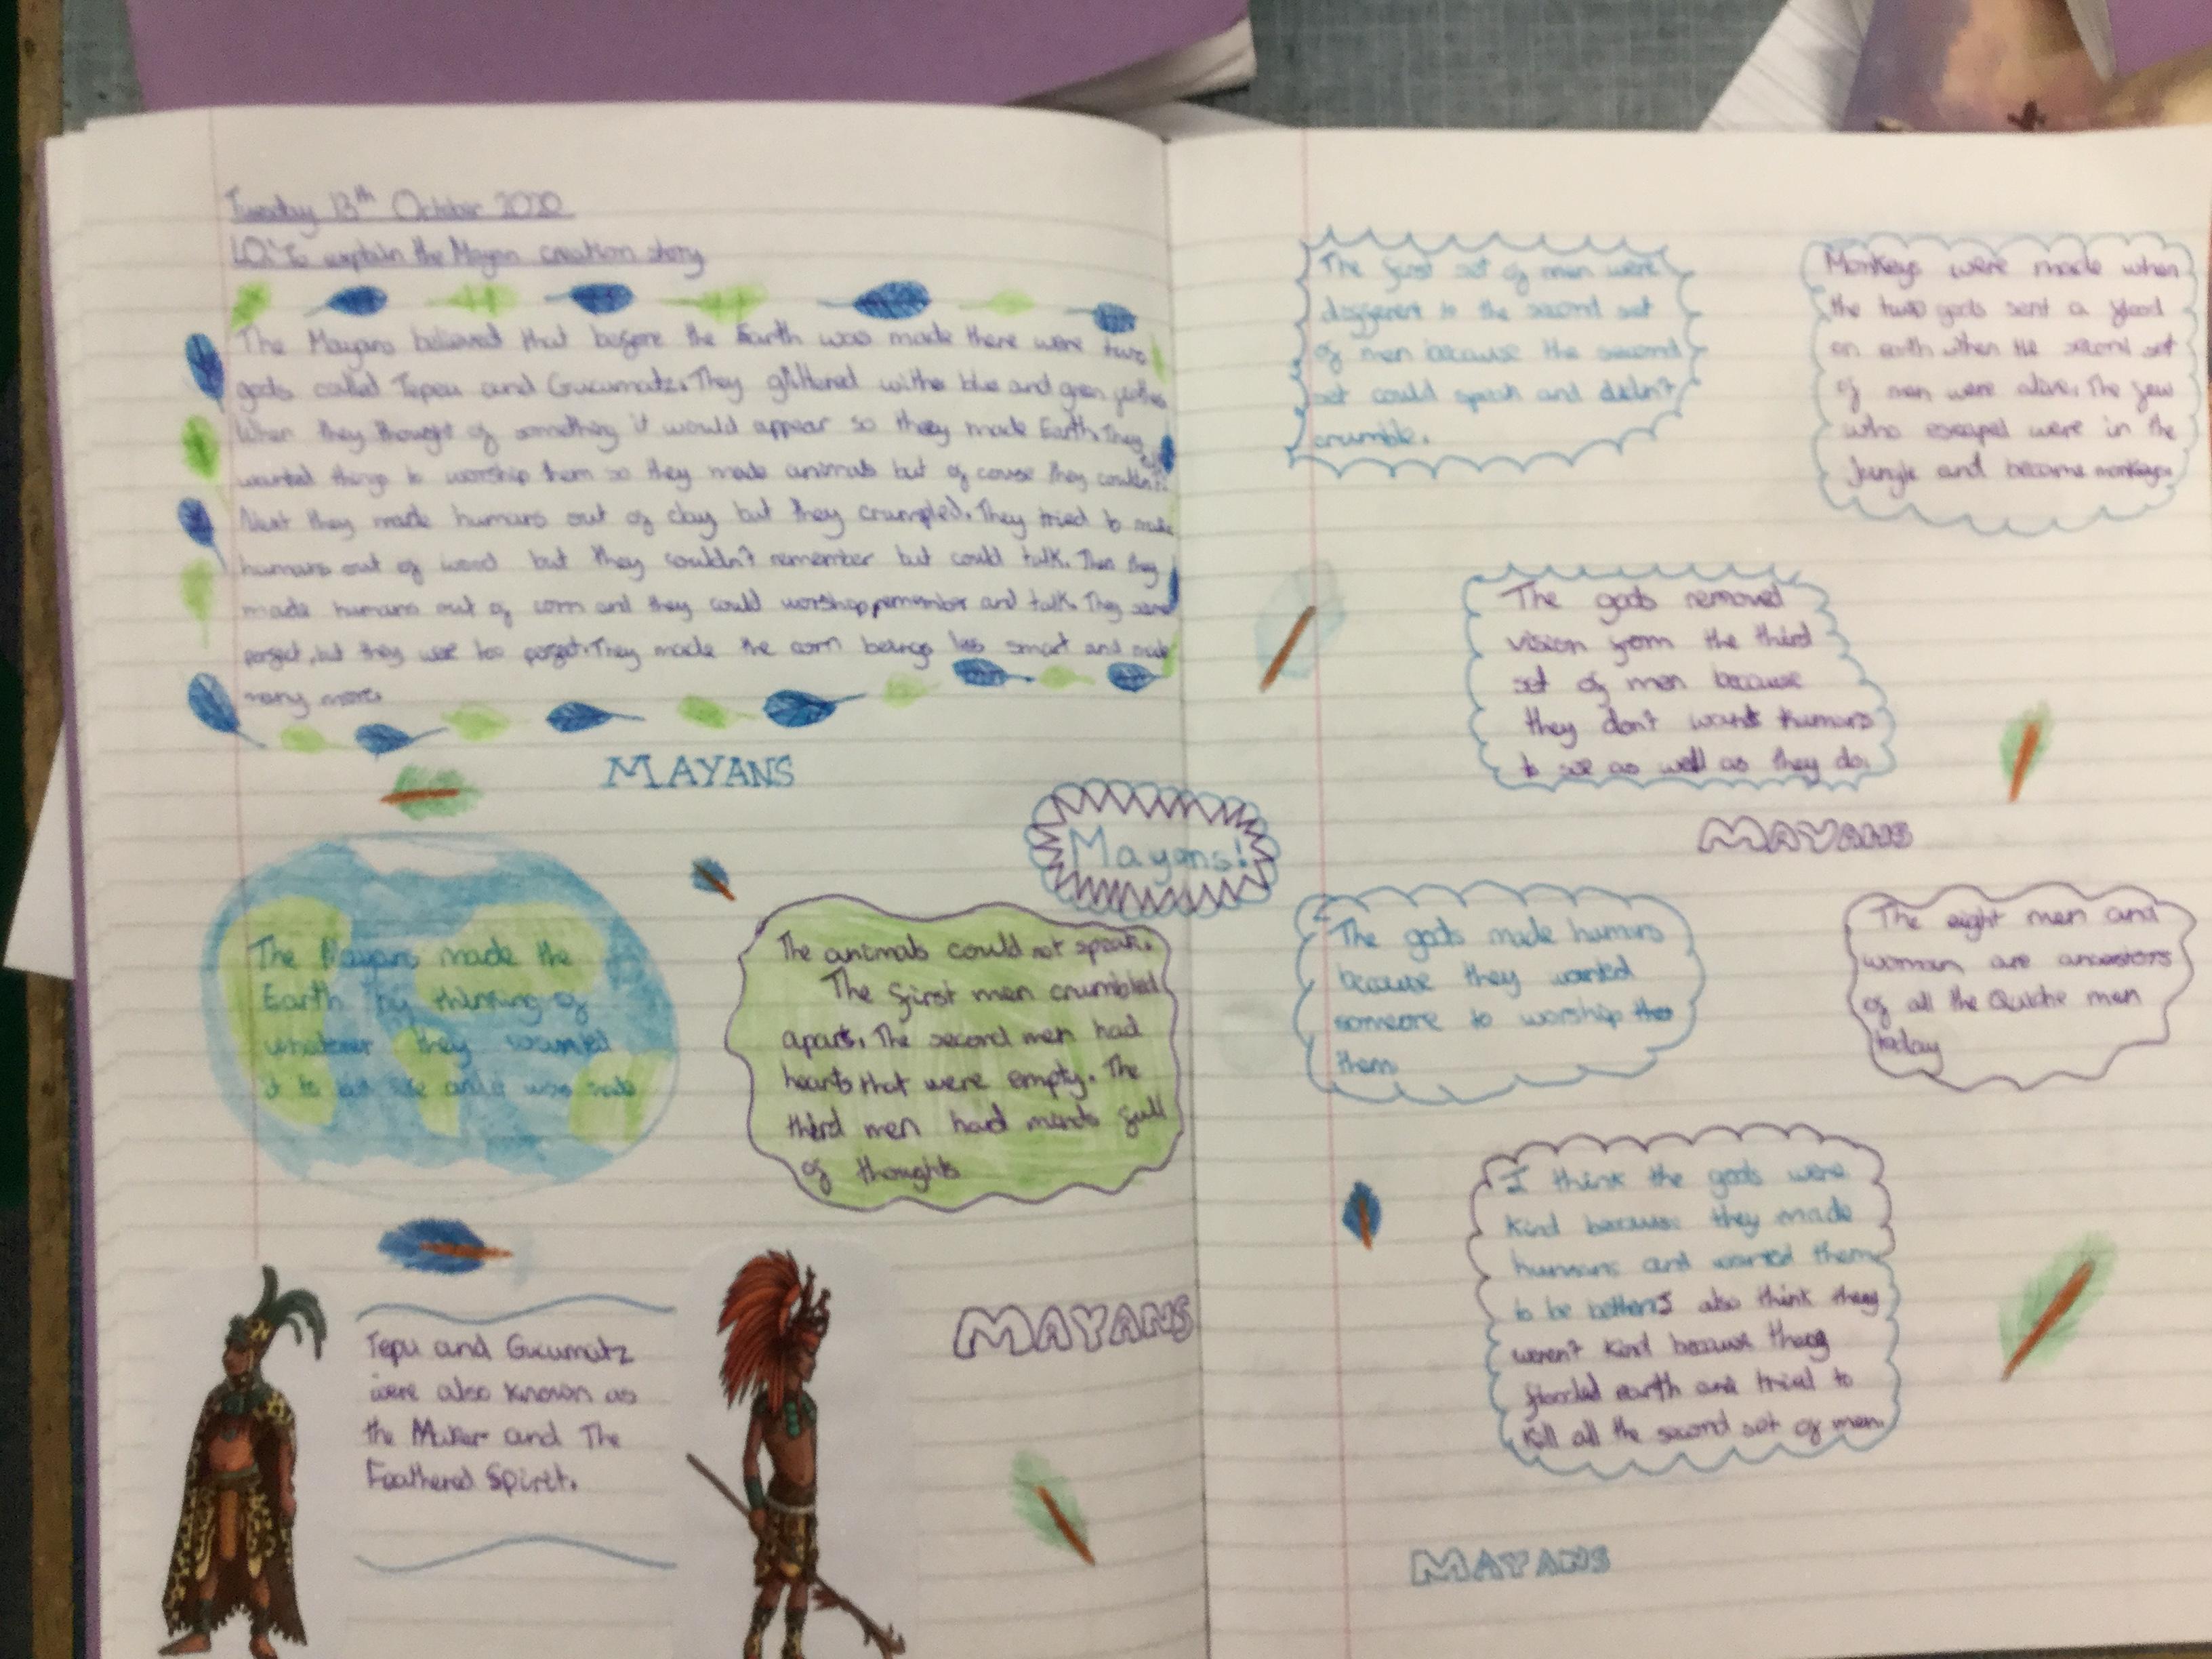 Tuesday 13th October 2020
LO: To explain the Mayan creation story
The Mayans believed that before the Earth was made there were two
gods called Tepeu and Gucumatz. They glittered withe blue and green
When they thought of something it would appear so they made Earth. They
wanted things to worship them so they made animals but of couse they couldn't.
Next they made humans out of clay but they crumpled. They tried to make
humans out of wood but they couldn't remember but could talk. Then they
made humans out of corn and they could worship, remember and talk. They
perfect, but they were too perfect. They made the corn beings less smart and made
many more.
MAYANS
The Mayans made the
Earth by thinking of
whatever they wanted
it to
The animals could not speak.
The first men crumbled
apart. The second men had
hearts that were empty. The
third men had minds full
of thoughts
Tepu and Gucumatz
were also known as
the Maker and The
Feathered Spirit.
MAYANS
Mayans!
The first set of men were
different to the second set
of men because the second
set could speak and didn't
crumble.
Monkeys were made when
the two gods sent a flood
on earth when the second set
of men were alive. The few
who escaped were in the
jungle and became monkeys.
The gods removed
vision from the third
set of men because
they don't want humans
to see as well as they do.
MAYANS
The gods made humans
because they wanted
someone to worship
them
The eight men and
woman are ancestors
of all the Quiche men
today
I think the gods were
kind because they made
humans and wanted them
to be better. I also think they
weren't kind because they
flooded earth and tried to
kill all the second set of men.
MAYANS